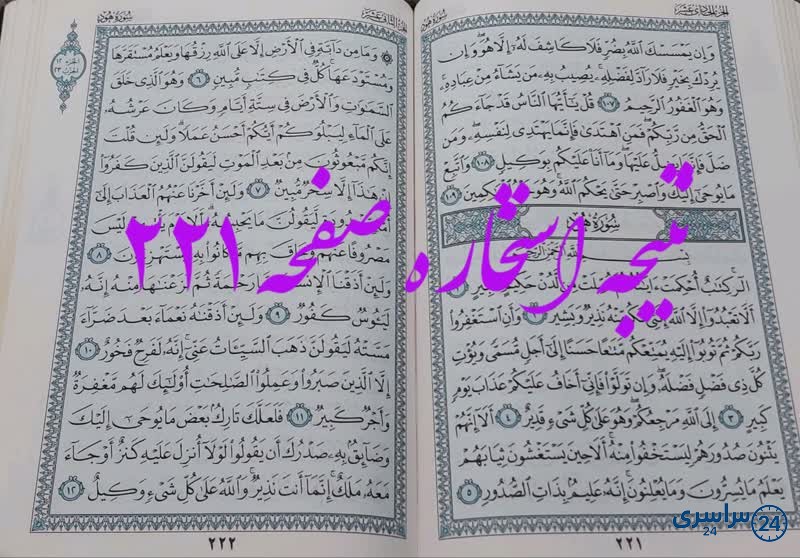 سُورَةُ هُودٍ
الجُزءُ الحَادِي عَشَرَ
وَإِن يَمْسَسْكَ ٱللَّهُ بِضُرٍّ فَلَا كَاشِفَ لَهُۥٓ إِلَّا هُوَ ۖ وَإِن
يُرِدْكَ بِخَيْرٍ فَلَا رَآدَّ لِفَضْلِهِۦ ۚ يُصِيبُ بِهِۦ مَن يَشَآءُ مِنْ عِبَادِهِۦ ۚ
وَهُوَ ٱلْغَفُورُ ٱلرَّحِيمُ ١٠٧ قُلْ يَٰٓأَيُّهَا ٱلنَّاسُ قَدْ جَآءَكُمُ
ٱلْحَقُّ مِن رَّبِّكُمْ ۖ فَمَنِ ٱهْتَدَىٰ فَإِنَّمَا يَهْتَدِى لِنَفْسِهِۦ ۖ وَمَن
ضَلَّ فَإِنَّمَا يَضِلُّ عَلَيْهَا ۖ وَمَآ أَنَا۠ عَلَيْكُم بِوَكِيلٍ ١٠٨ وَٱتَّبِعْ
مَا يُوحَىٰٓ إِلَيْكَ وَٱصْبِرْ حَتَّىٰ يَحْكُمَ ٱللَّهُ ۚ وَهُوَ خَيْرُ ٱلْحَٰكِمِينَ ١٠٩
سُورَةُ هُودٍ
بِسْمِ ٱللَّهِ ٱلرَّحْمَٰنِ ٱلرَّحِيمِ
الٓر ۚ كِتَٰبٌ أُحْكِمَتْ ءَايَٰتُهُۥ ثُمَّ فُصِّلَتْ مِن لَّدُنْ حَكِيمٍ خَبِيرٍ ١
أَلَّا تَعْبُدُوٓا۟ إِلَّا ٱللَّهَ ۚ إِنَّنِى لَكُم مِّنْهُ نَذِيرٌ وَبَشِيرٌ ٢ وَأَنِ ٱسْتَغْفِرُوا۟
رَبَّكُمْ ثُمَّ تُوبُوٓا۟ إِلَيْهِ يُمَتِّعْكُم مَّتَٰعًا حَسَنًا إِلَىٰٓ أَجَلٍ مُّسَمًّى وَيُؤْتِ
كُلَّ ذِى فَضْلٍ فَضْلَهُۥ ۖ وَإِن تَوَلَّوْا۟ فَإِنِّىٓ أَخَافُ عَلَيْكُمْ عَذَابَ يَوْمٍ
كَبِيرٍ ٣ إِلَى ٱللَّهِ مَرْجِعُكُمْ ۖ وَهُوَ عَلَىٰ كُلِّ شَىْءٍ قَدِيرٌ ٤ أَلَآ إِنَّهُمْ
يَثْنُونَ صُدُورَهُمْ لِيَسْتَخْفُوا۟ مِنْهُ ۚ أَلَا حِينَ يَسْتَغْشُونَ ثِيَابَهُمْ
يَعْلَمُ مَا يُسِرُّونَ وَمَا يُعْلِنُونَ ۚ إِنَّهُۥ عَلِيمٌۢ بِذَاتِ ٱلصُّدُورِ ٥
٢٢١
سُورَةُ هُودٍ
الجُزءُ الثَّانِي عَشَرَ
الجزء ١٢
الحزب ٢٣
۞ وَمَا مِن دَآبَّةٍ فِى ٱلْأَرْضِ إِلَّا عَلَى ٱللَّهِ رِزْقُهَا وَيَعْلَمُ مُسْتَقَرَّهَا
وَمُسْتَوْدَعَهَا ۚ كُلٌّ فِى كِتَٰبٍ مُّبِينٍ ٦ وَهُوَ ٱلَّذِى خَلَقَ
ٱلسَّمَٰوَٰتِ وَٱلْأَرْضَ فِى سِتَّةِ أَيَّامٍ وَكَانَ عَرْشُهُۥ
عَلَى ٱلْمَآءِ لِيَبْلُوَكُمْ أَيُّكُمْ أَحْسَنُ عَمَلًا ۗ وَلَئِن قُلْتَ
إِنَّكُم مَّبْعُوثُونَ مِنۢ بَعْدِ ٱلْمَوْتِ لَيَقُولَنَّ ٱلَّذِينَ كَفَرُوٓا۟
إِنْ هَٰذَآ إِلَّا سِحْرٌ مُّبِينٌ ٧ وَلَئِنْ أَخَّرْنَا عَنْهُمُ ٱلْعَذَابَ إِلَىٰٓ
أُمَّةٍ مَّعْدُودَةٍ لَّيَقُولُنَّ مَا يَحْبِسُهُۥٓ ۗ أَلَا يَوْمَ يَأْتِيهِمْ لَيْسَ
مَصْرُوفًا عَنْهُمْ وَحَاقَ بِهِم مَّا كَانُوا۟ بِهِۦ يَسْتَهْزِءُونَ ٨
وَلَئِنْ أَذَقْنَا ٱلْإِنسَٰنَ مِنَّا رَحْمَةً ثُمَّ نَزَعْنَٰهَا مِنْهُ إِنَّهُۥ
لَيَـُٔوسٌ كَفُورٌ ٩ وَلَئِنْ أَذَقْنَٰهُ نَعْمَآءَ بَعْدَ ضَرَّآءَ
مَسَّتْهُ لَيَقُولَنَّ ذَهَبَ ٱلسَّيِّـَٔاتُ عَنِّىٓ ۚ إِنَّهُۥ لَفَرِحٌ فَخُورٌ ١٠
إِلَّا ٱلَّذِينَ صَبَرُوا۟ وَعَمِلُوا۟ ٱلصَّٰلِحَٰتِ أُو۟لَٰٓئِكَ لَهُم مَّغْفِرَةٌ
وَأَجْرٌ كَبِيرٌ ١١ فَلَعَلَّكَ تَارِكٌۢ بَعْضَ مَا يُوحَىٰٓ إِلَيْكَ
وَضَآئِقٌۢ بِهِۦ صَدْرُكَ أَن يَقُولُوا۟ لَوْلَآ أُنزِلَ عَلَيْهِ كَنزٌ أَوْ جَآءَ
مَعَهُۥ مَلَكٌ ۚ إِنَّمَآ أَنتَ نَذِيرٌ ۚ وَٱللَّهُ عَلَىٰ كُلِّ شَىْءٍ وَكِيلٌ ١٢
٢٢٢
نتیجه استخاره صفحه ۲۲۱
سراسری
24
24